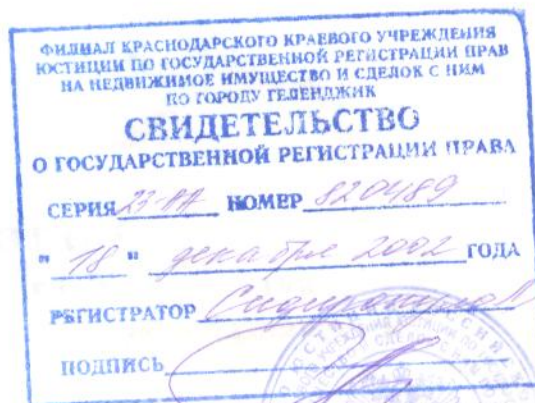 ФИЛИАЛ КРАСНОДАРСКОГО КРАЕВОГО УЧРЕЖДЕНИЯ
ЮСТИЦИИ ПО ГОСУДАРСТВЕННОЙ РЕГИСТРАЦИИ ПРАВ
НА НЕДВИЖИМОЕ ИМУЩЕСТВО И СДЕЛОК С НИМ
ПО ГОРОДУ ГЕЛЕНДЖИК
СВИДЕТЕЛЬСТВО
О ГОСУДАРСТВЕННОЙ РЕГИСТРАЦИИ ПРАВА
СЕРИЯ 23-АА НОМЕР 820489
" 18 " декабря 2002 ГОДА
РЕГИСТРАТОР
ПОДПИСЬ